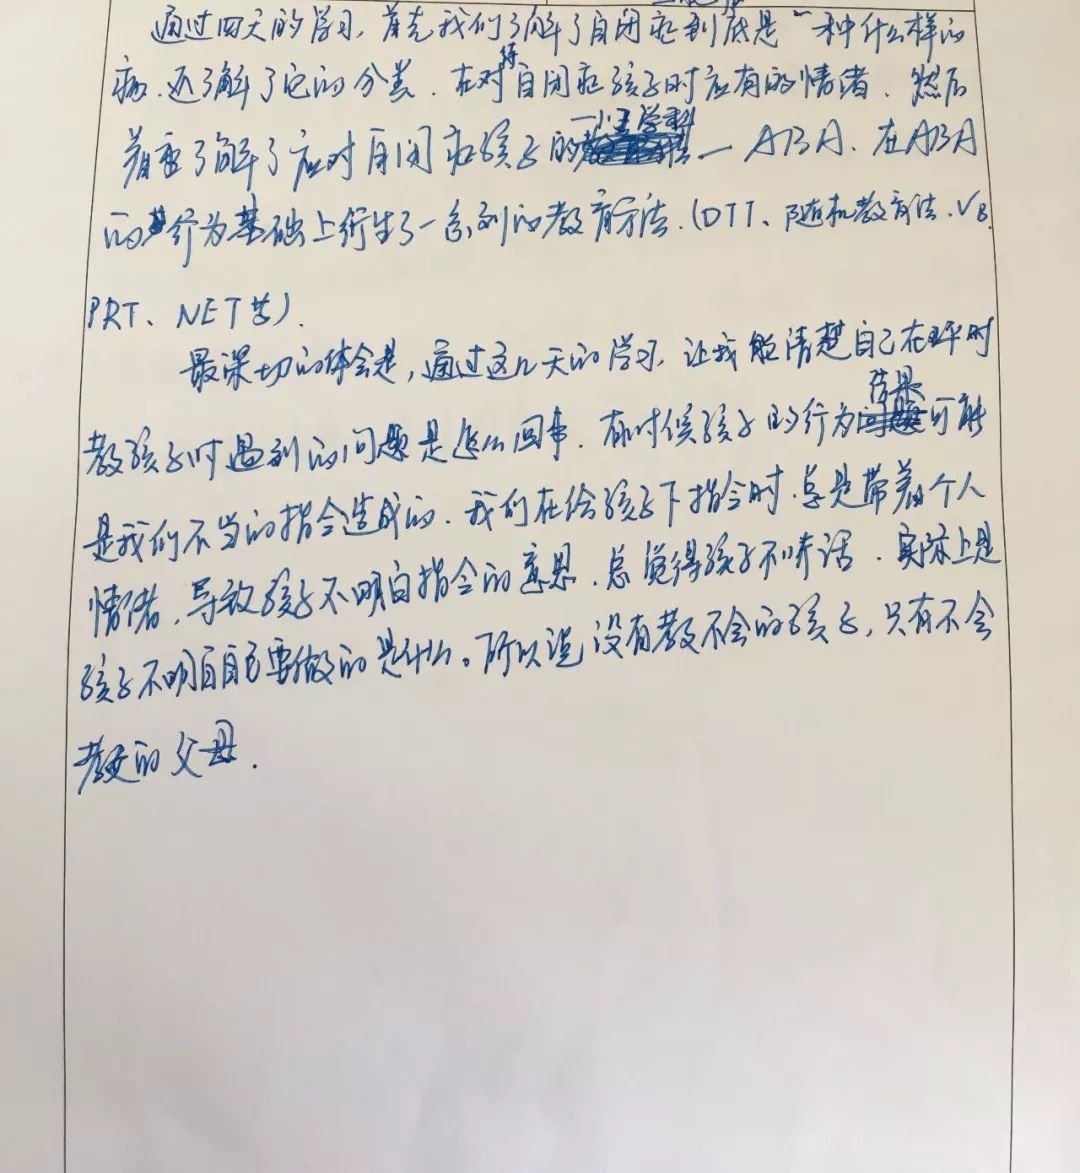 通过四天的学习，首先我们了解了自闭症到底是一种什么样的
病，还了解了它的分类，在对待自闭症孩子时应有的情绪，然后
着重了解了应对自闭症孩子的一门学科—ABA，在ABA
的行为基础上衍生了一系列的教育方法.(DTT、随机教育法、VB.
PRT、NET等).
最深切的体会是，通过这几天的学习，让我能清楚自己在平时
教孩子时遇到的问题是怎么回事，有时候孩子的行为结果可能
是我们不当的指令造成的，我们在给孩子下指令时，总是带着个人
情绪，导致孩子不明白指令的意思，总觉得孩子不听话，实际上是
孩子不明白自己要做的是什么。所以说没有教不会的孩子，只有不会
教的父母.